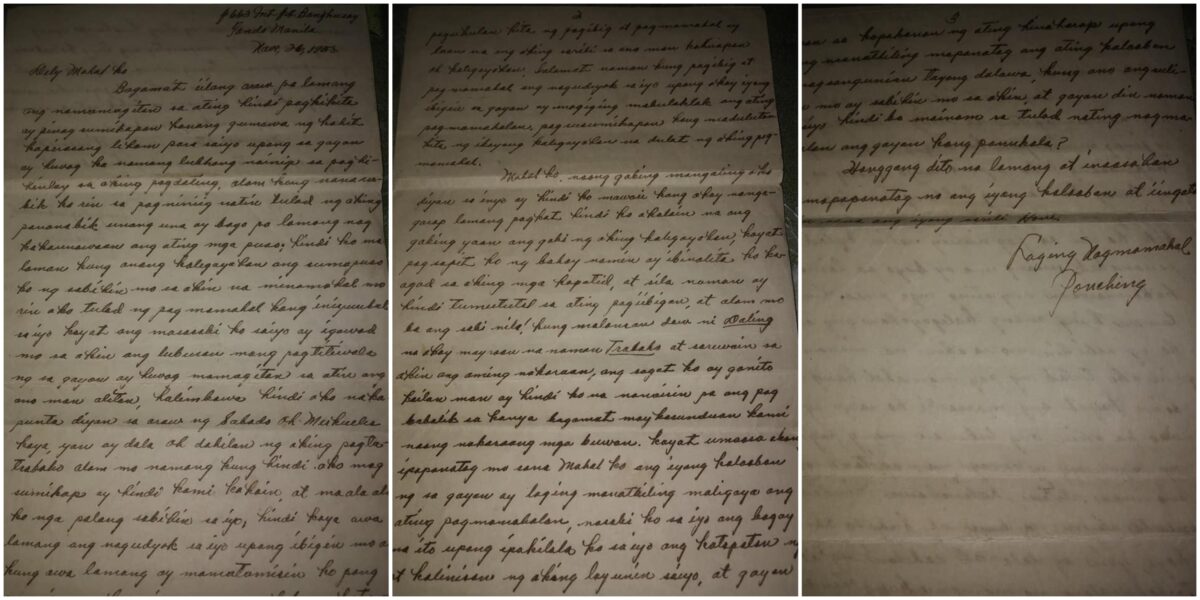 Tondo Manila
Nov, 26, 1953
Mahal ko
Bagamat iilang araw pa lamang
ang namamagitan sa ating hindi pagkikita
ay pinag sumikapan kanang gumawa ng kahit
kapirasong liham para saiyo upang sa gayon
ay huwag ka namang lubhang nainip sa pag hi-
hintay sa aking pagdating, alam kung nanana-
bik ka rin sa pagniniig natin tulad ng aking
pananabik unang una ay bago pa lamang nag
kakaunawaan ang ating mga puso, hindi ko ma
laman kung anong kaligayahan ang sumapuso
ko ng sabihin mo sa akin na minamahal mo
rin ako tulad ng pag mamahal kong iniuukol
sa iyo kayat ang masasabi ko saiyo ay igawad
mo sa akin ang lubusan mong pagtitiwala
ng sa gayon ay huwag mamagitan sa atin ang
ano man alitan, halimbawa hindi ako naka
punta diyan sa araw ng Sabado Oh Mierkules
kaya, yan ay dala Oh dahilan ng aking pagta-
trabaho alam mo namang kung hindi ako mag
sumikap ay hindi kami kakain, at maala ala
ko nga palang sabihin sa iyo, hindi kaya awa
lamang ang nagudyok sa iyo upang ibigin mo a
kung awa lamang ay mamatamisin ko pang
2
pagukulan kita ng pagibig at pagmamahal ay
laan na ang aking sarili sa ano man kahirapan
oh kaligayahan. Salamat naman kung pagibig at
pag mamahal ang nagudyok sa iyo upang akoy iyong
ibigin sa gayon ay magiging mabulaklak ang ating
pagmamahalan, pag susumikapan kong madulutan
kita ng ibayong kaligayahan na dulot ng aking pag-
mamahal.
Mahal ko, noong gabing mangaling ako
diyan sa inyo ay hindi ko mawari kung akoy nanga-
ngarap lamang pagkat hindi ko akalain na ang
gabing yaon ang gabi ng aking kaligayahan, kayat
pag sapit ko ng bahay namin ay ibinalita ko ka-
agad sa aking mga kapatid, at sila naman ay
hindi tumututol sa ating pagiibigan, at alam mo
ba ang sabi nila! kung malaman daw ni Daling
na akoy mayroon na naman Trabaho at sariwain sa
akin ang aming nakaraan, ang sagot ko ay ganito
kailan man ay hindi ko na nanaisin pa ang pag
babalik sa kanya bagamat may kasunduan kami
noong nakaraang mga buwan. kayat umaasa akong
ipapanatag mo sana Mahal ko ang iyong kalooban
ng sa gayon ay laging manatiling maligaya ang
ating pagmamahalan, nasabi ko sa iyo ang bagay
na ito upang ipakilala ko sa iyo ang katapatan ng
at kalinisan ng aking layunin saiyo, at gayon
3
sa kapakanan ng ating hinaharap upang
manatiling mapanatag ang ating kalooban
magsangunian tayong dalawa, kung ano ang
mo ay sabihin mo sa akin, at gayon din naman
saiyo hindi ba mainam sa tulad nating nagma-
ang gayon kong panukala?
Hanggang dito na lamang at inaasahan
mapapanatag na ang iyong kalooban at iingat
ang iyong sarili
Laging Nagmamahal
Ponching